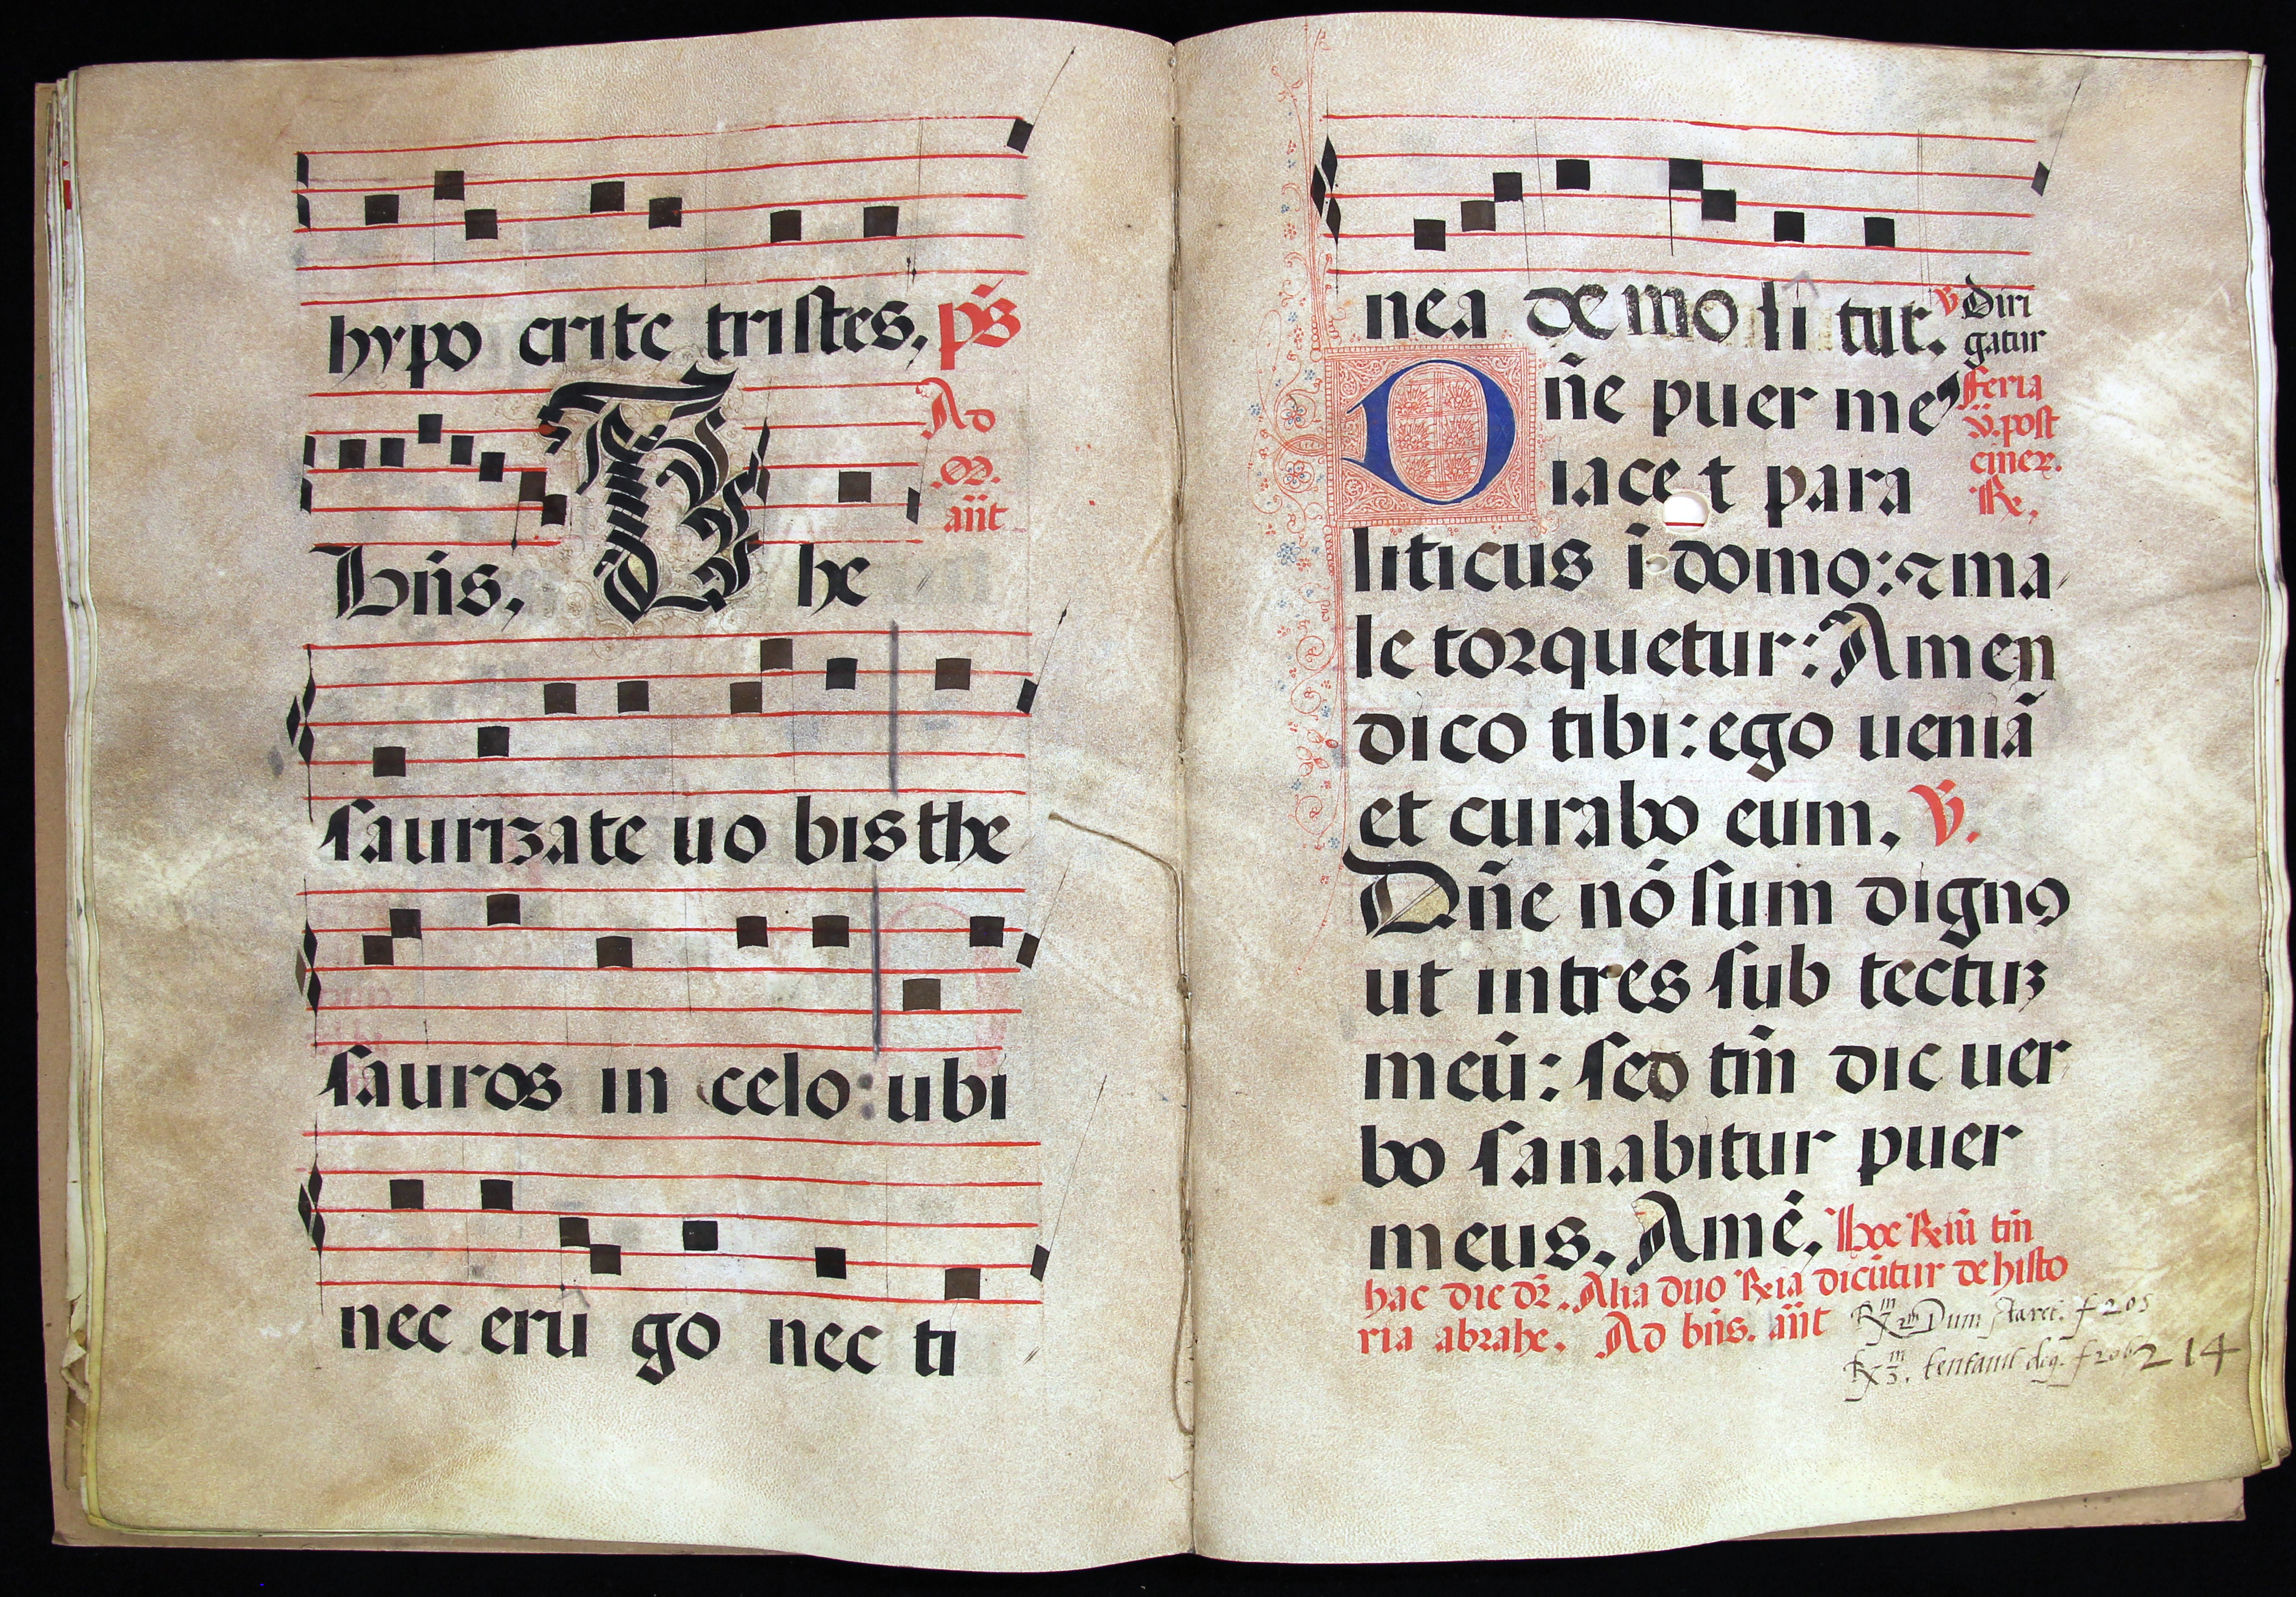 hypo crite tristes, p̄s
Ad
.M.
añt
Bn̄s, The
saurizate uo bis the
sauros in celo: ubi
nec erū go nec ti
nea demo li tur. v̄ Diri
gatur
Dñe puer meꝰ
feria
v̄. post
ciner.
℟.
iacet para
liticus ī domo: ⁊ ma
le torquetur: Amen
dico tibi: ego ueniā
et curabo eum. v̄.
Dñe nō sum dignꝰ
ut intres sub tectuꝫ
meū: sed tm̄ dic uer
bo sanabitur puer
meus. Amē. Hoc ℟iū tm̄
hac die dr̄. Alia duo ℟ia dicūtur de histo
ria abrahe. Ad bn̄s. añt
℟ᵐ 2ᵐ Dum staret. f 205
℟ᵐ 3. tentauit deꝰ. f 206
214